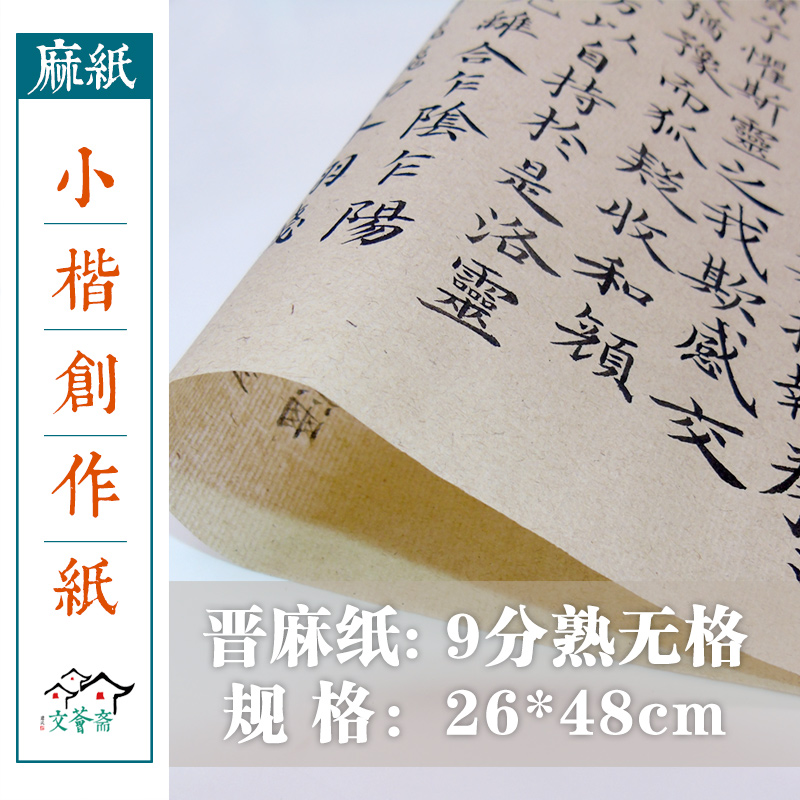 麻紙
小楷創作紙
文薈斋
懼斯靈之我欺感交
猶豫而狐疑收和顏
以自持於是洛靈
離合乍陰乍陽
晋麻纸: 9分熟无格
规 格: 26*48cm